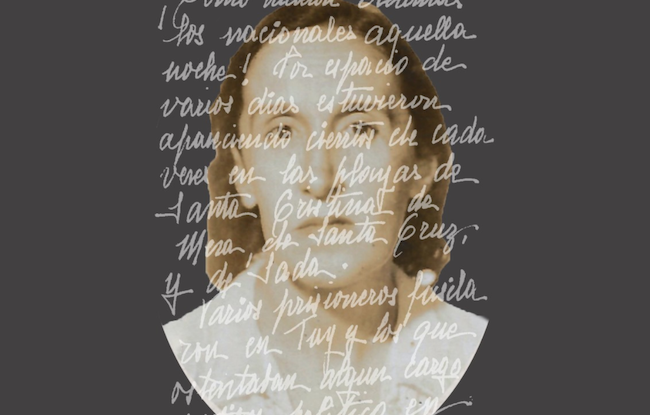 ¡Como
los nacionales aquella
noche! Por espacio de
varios dias estuvieron
apareciendo cientos de cada
veres en las playas de
Santa Cristina, de
Mera, de Santa Cruz,
y de Sada.
Varios prisioneros fusila
ron en Tuy y los que
ostentaban algun cargo
politico en